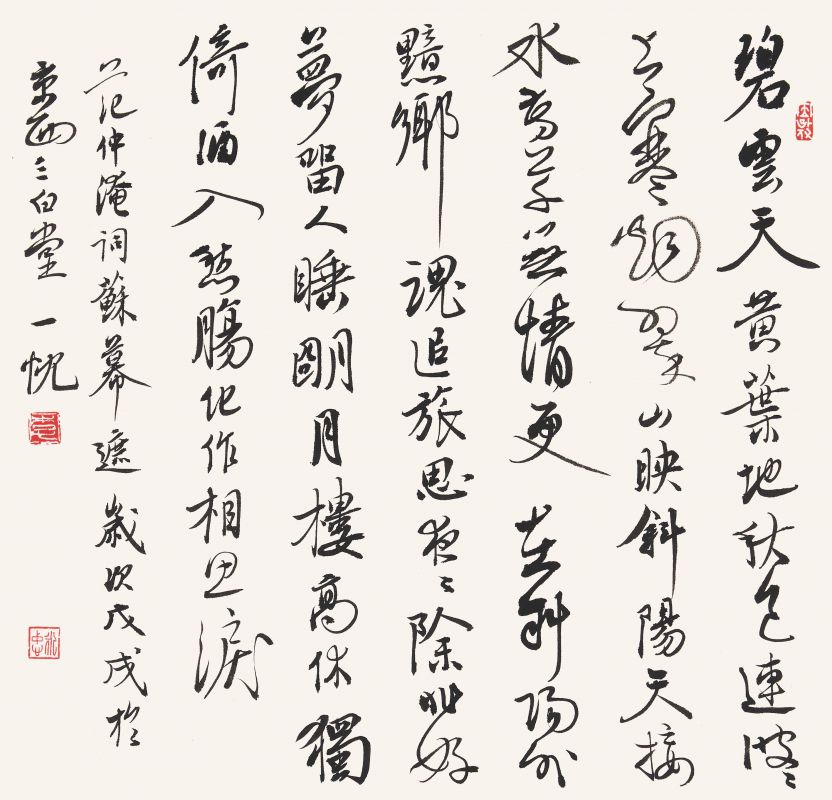 碧雲天黄葉地秋色連波〻
上寒烟翠山映斜陽天接
水芳草無情更在斜陽外
黯鄉魂追旅思夜〻除非好
夢留人睡明月樓高休獨
倚酒入愁腸化作相思淚
范仲淹詞蘇幕遮歲次戊戌於
京西三白堂一忱